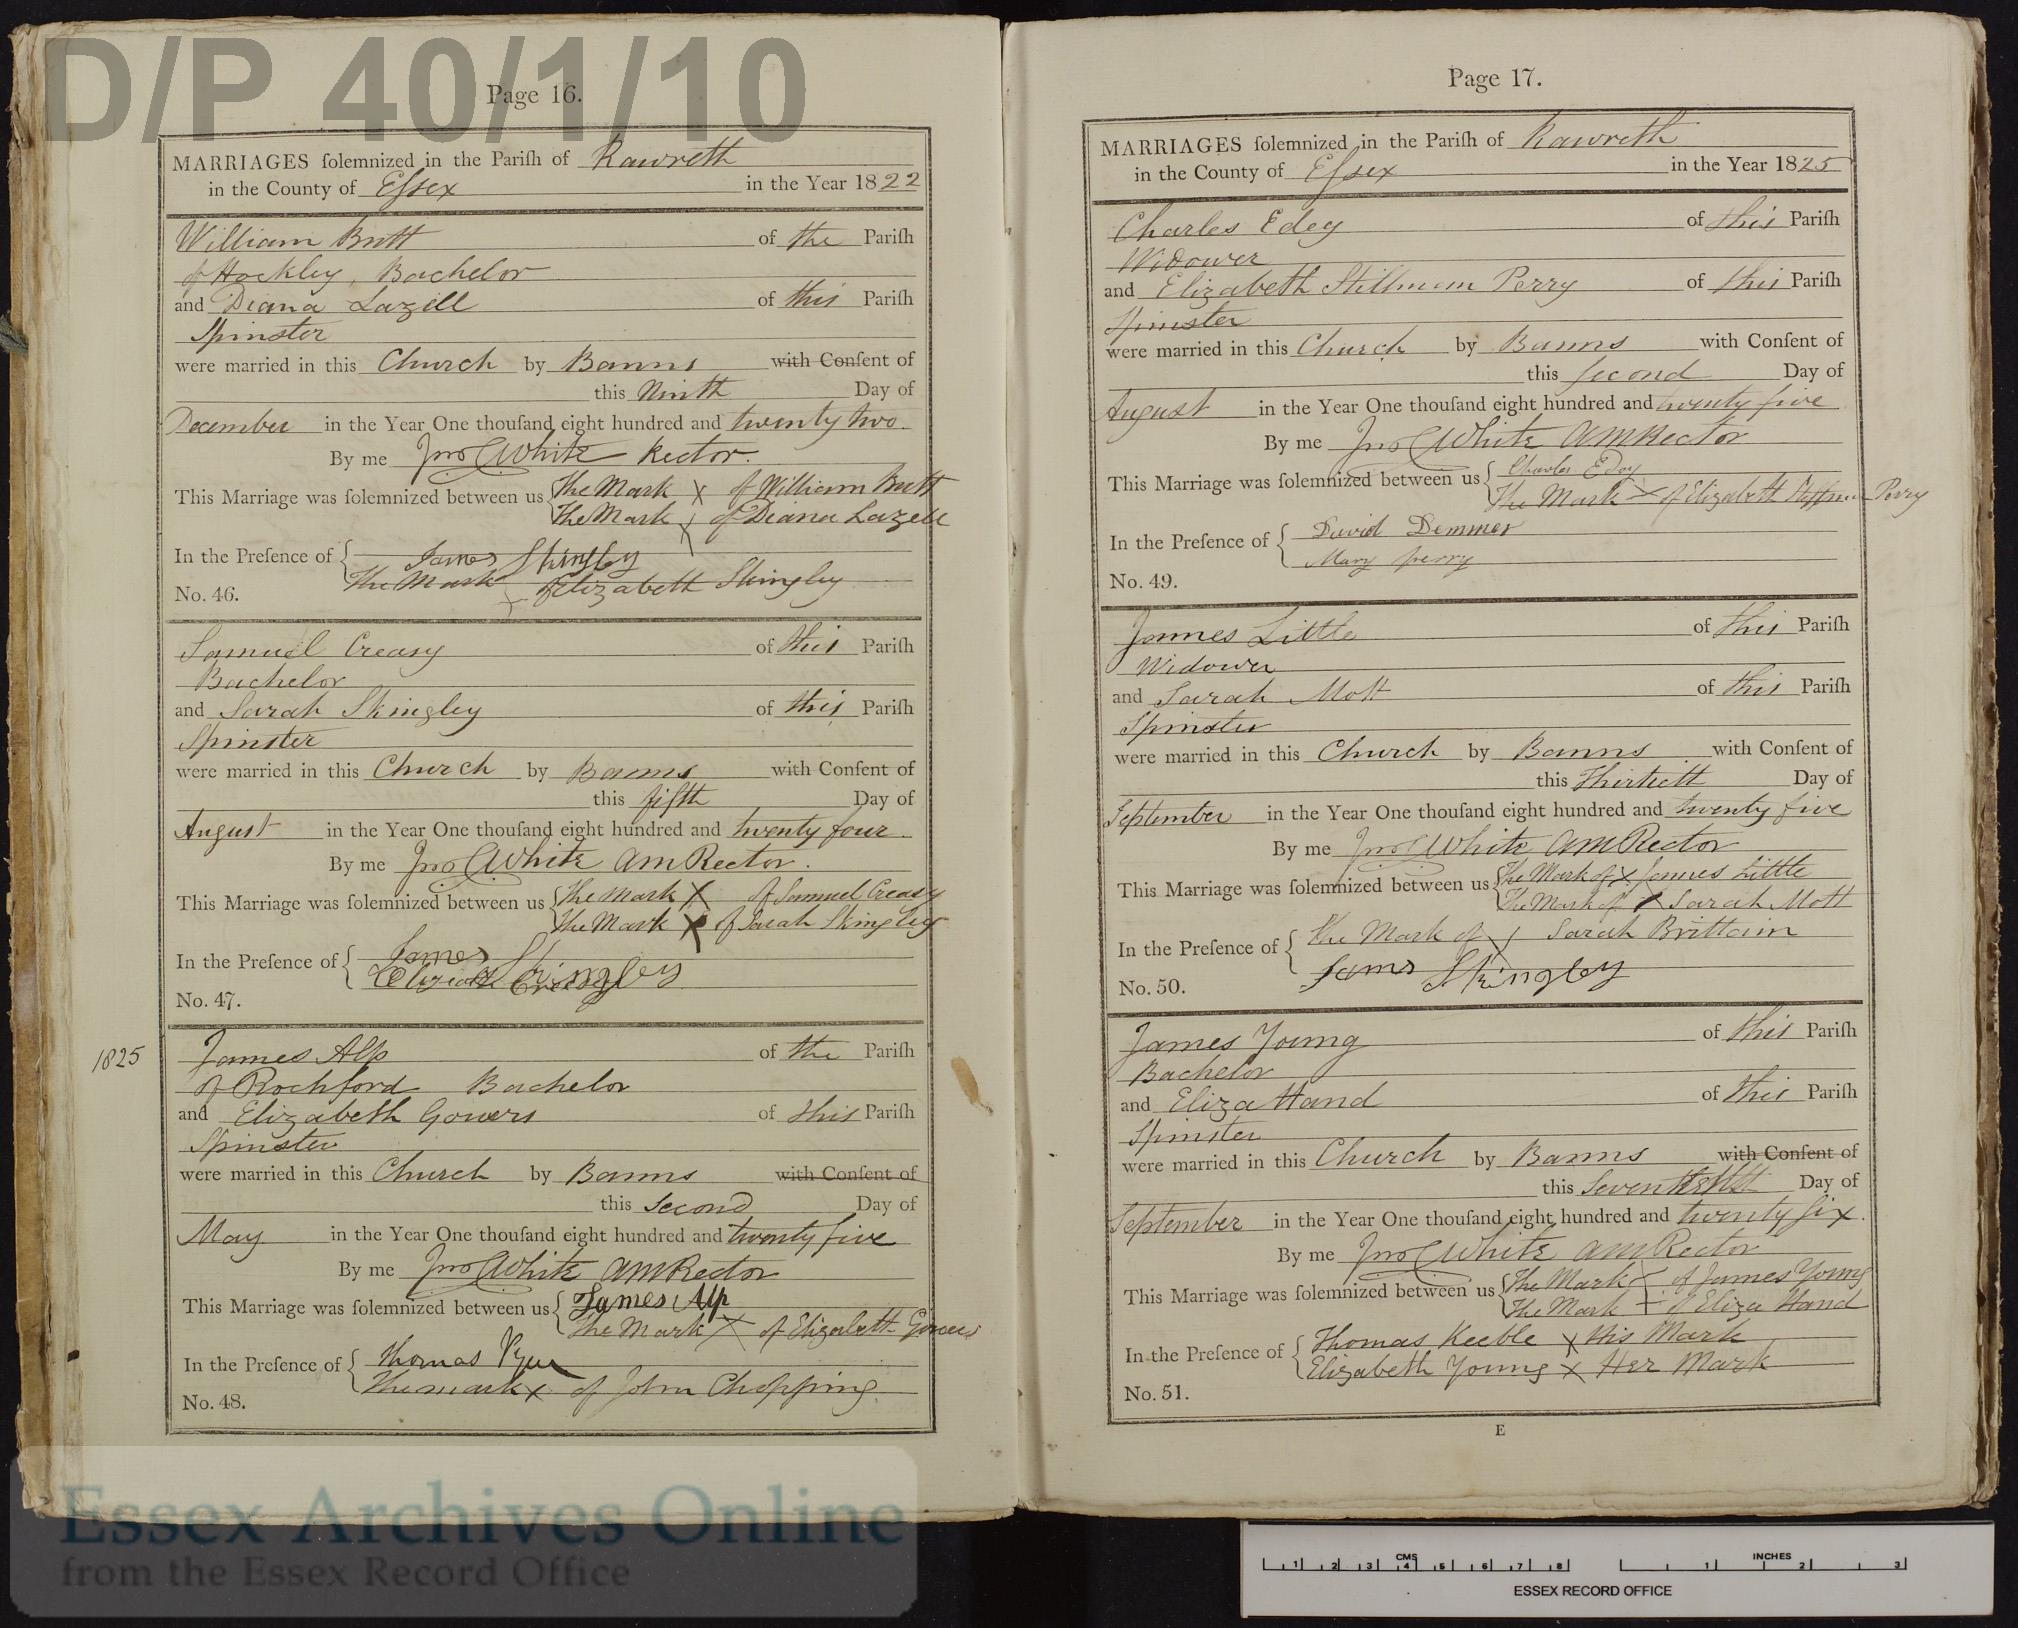 D/P 40/1/10
Page 16.
MARRIAGES ſolemnized in the Pariſh of Rawreth
in the County of Eſsex in the Year 1822
William Britt of the Pariſh
of Hockley, Bachelor
and Diana Lazell of this Pariſh
Spinster
were married in this Church by Banns with Conſent of
this Ninth Day of
December in the Year One thouſand eight hundred and twenty two.
By me Jno White Rector.
This Marriage was ſolemnized between us The Mark X of William Britt
The Mark X of Diana Lazell
In the Preſence of James Skingley
The Mark X of Elizabeth Skingley
No. 46.
Samuel Creasy of this Pariſh
Bachelor
and Sarah Skingley of this Pariſh
Spinster
were married in this Church by Banns with Conſent of
this fifth Day of
August in the Year One thouſand eight hundred and twenty four.
By me Jno White AM Rector.
This Marriage was ſolemnized between us The mark X of Samuel Creasy
The Mark X of Sarah Skingley
In the Preſence of James Skingley
No. 47.
1825
James Alp of the Pariſh
of Rochford Bachelor
and Elizabeth Gowers of this Pariſh
Spinster
were married in this Church by Banns with Conſent of
this Second Day of
May in the Year One thouſand eight hundred and twenty five
By me Jno White AM Rector
This Marriage was ſolemnized between us James Alp
The Mark X of Elizabeth Gowers
In the Preſence of Thomas
The mark X of John Chopping
No. 48.
Page 17.
MARRIAGES ſolemnized in the Pariſh of Rawreth
in the County of Eſsex in the Year 1825
Charles Edey of this Pariſh
Widower
and Elizabeth Stillmum Perry of this Pariſh
Spinster
were married in this Church by Banns with Conſent of
this Second Day of
August in the Year One thouſand eight hundred and twenty five
By me Jno White AM Rector
This Marriage was ſolemnized between us Charles Edey
The Mark X of Elizabeth Perry
In the Preſence of David Demmer
Mary perry
No. 49.
James Little of this Pariſh
Widower
and Sarah Mott of this Pariſh
Spinster
were married in this Church by Banns with Conſent of
this Thirtieth Day of
September in the Year One thouſand eight hundred and twenty five
By me Jno White AM Rector
This Marriage was ſolemnized between us The Mark of X James Little
The Mark of X Sarah Mott
In the Preſence of The Mark of X Sarah Brittain
James Skingley
No. 50.
James Young of this Pariſh
Bachelor
and Eliza Hand of this Pariſh
Spinster
were married in this Church by Banns with Conſent of
this Day of
September in the Year One thouſand eight hundred and twenty six.
By me Jno White AM Rector
This Marriage was ſolemnized between us The Mark X of James Young
The Mark X of Eliza Hand
In the Preſence of Thomas Keeble X His Mark
Elizabeth Young X Her Mark
No. 51.
E
Essex Archives Online
from the Essex Record Office
CMS INCHES
1 2 3 4 5 6 7 8 1 2 3
ESSEX RECORD OFFICE